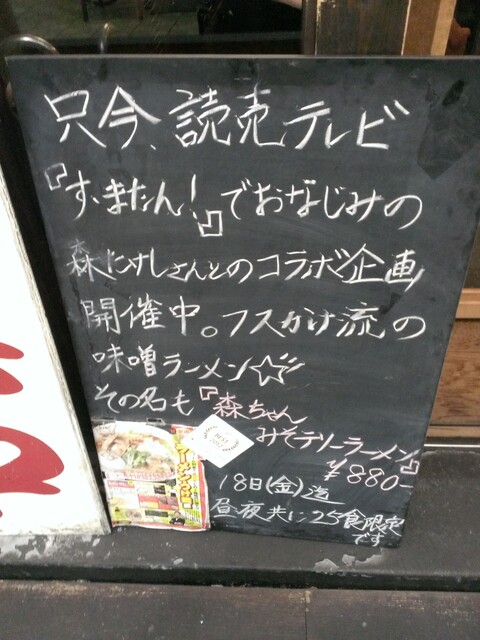 只今、読売テレビ
『す・またん!』でおなじみの
森たけしさんとのコラボ企画
開催中。フスかけ流の
味噌ラーメン☆
その名も『森ちゃん
みそテリーラーメン』
¥880-
18日(金)迄
昼夜共に25食限定
です